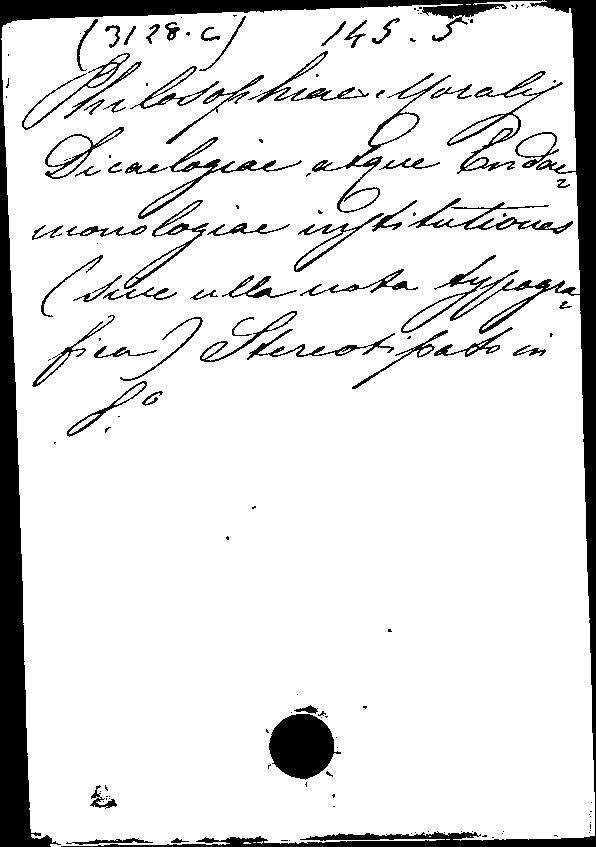 (3128.C) 145.5
Philosophiae Moralis
Dicaelogiae atque Endae=
monologiae institutiones
(sine ulla nota typogra=
fica) Stereotipato in
8.º